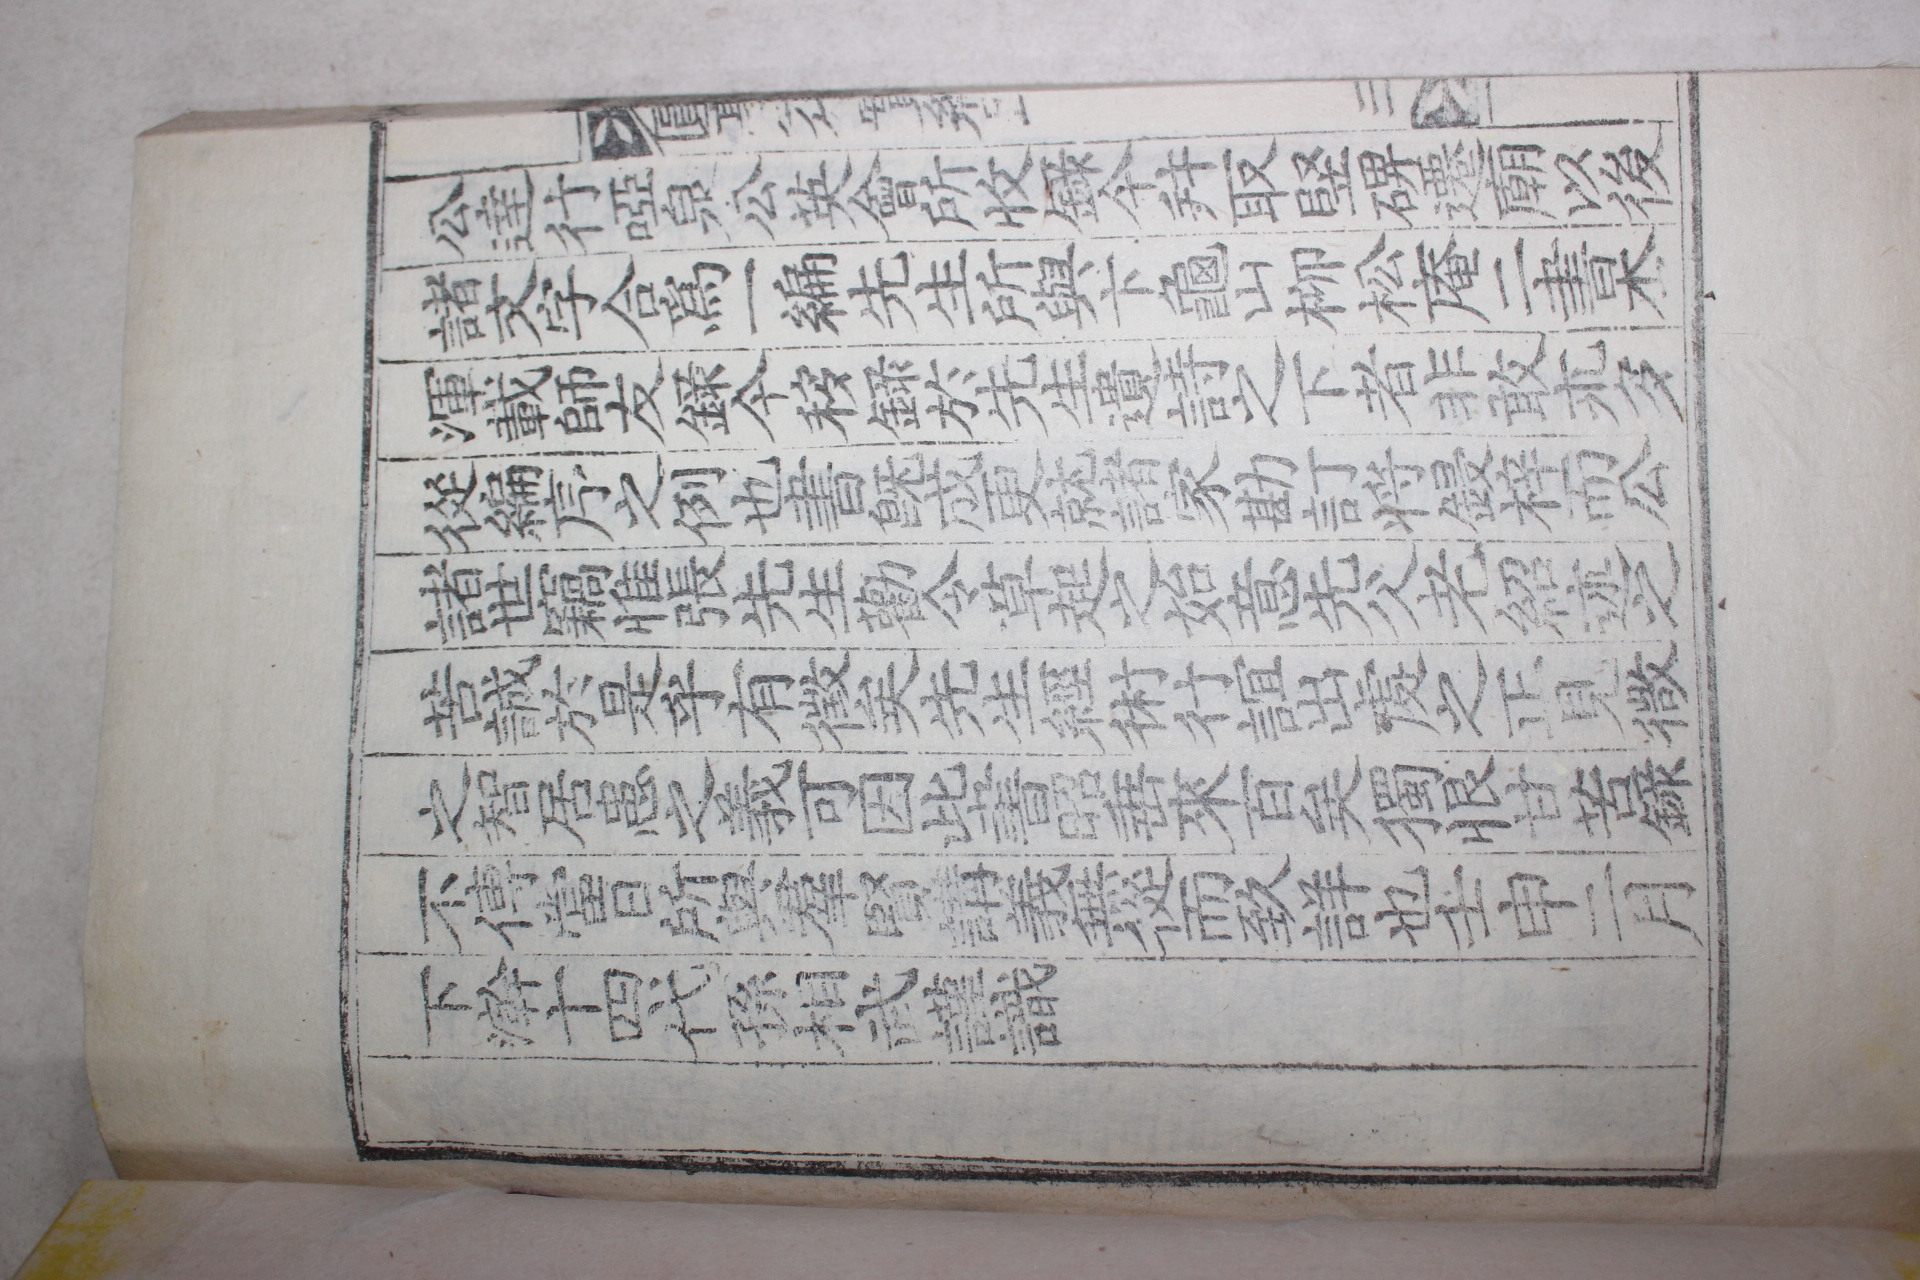 公達行啞泉公英會所收錄今幷取竪碑遷廟以後
諸文字合爲一編先生所與卞龜山柳松庵二書本
渾載師友錄今移錄於先生遺詩之下者非敢求多
從編序之例也書旣成更就諸家勘訂將鋟梓而公
諸世竊惟張先生勸令草起之始意先父老紹述之
苦誠於是乎有徵矣先生經術行誼出處之正見微
之智居患之義可因此書昭垂來百矣獨恨甘苦錄
不傳當日所與羣賢講義無從而致詳也壬申二月
下澣十四代孫相武謹識
實紀
三